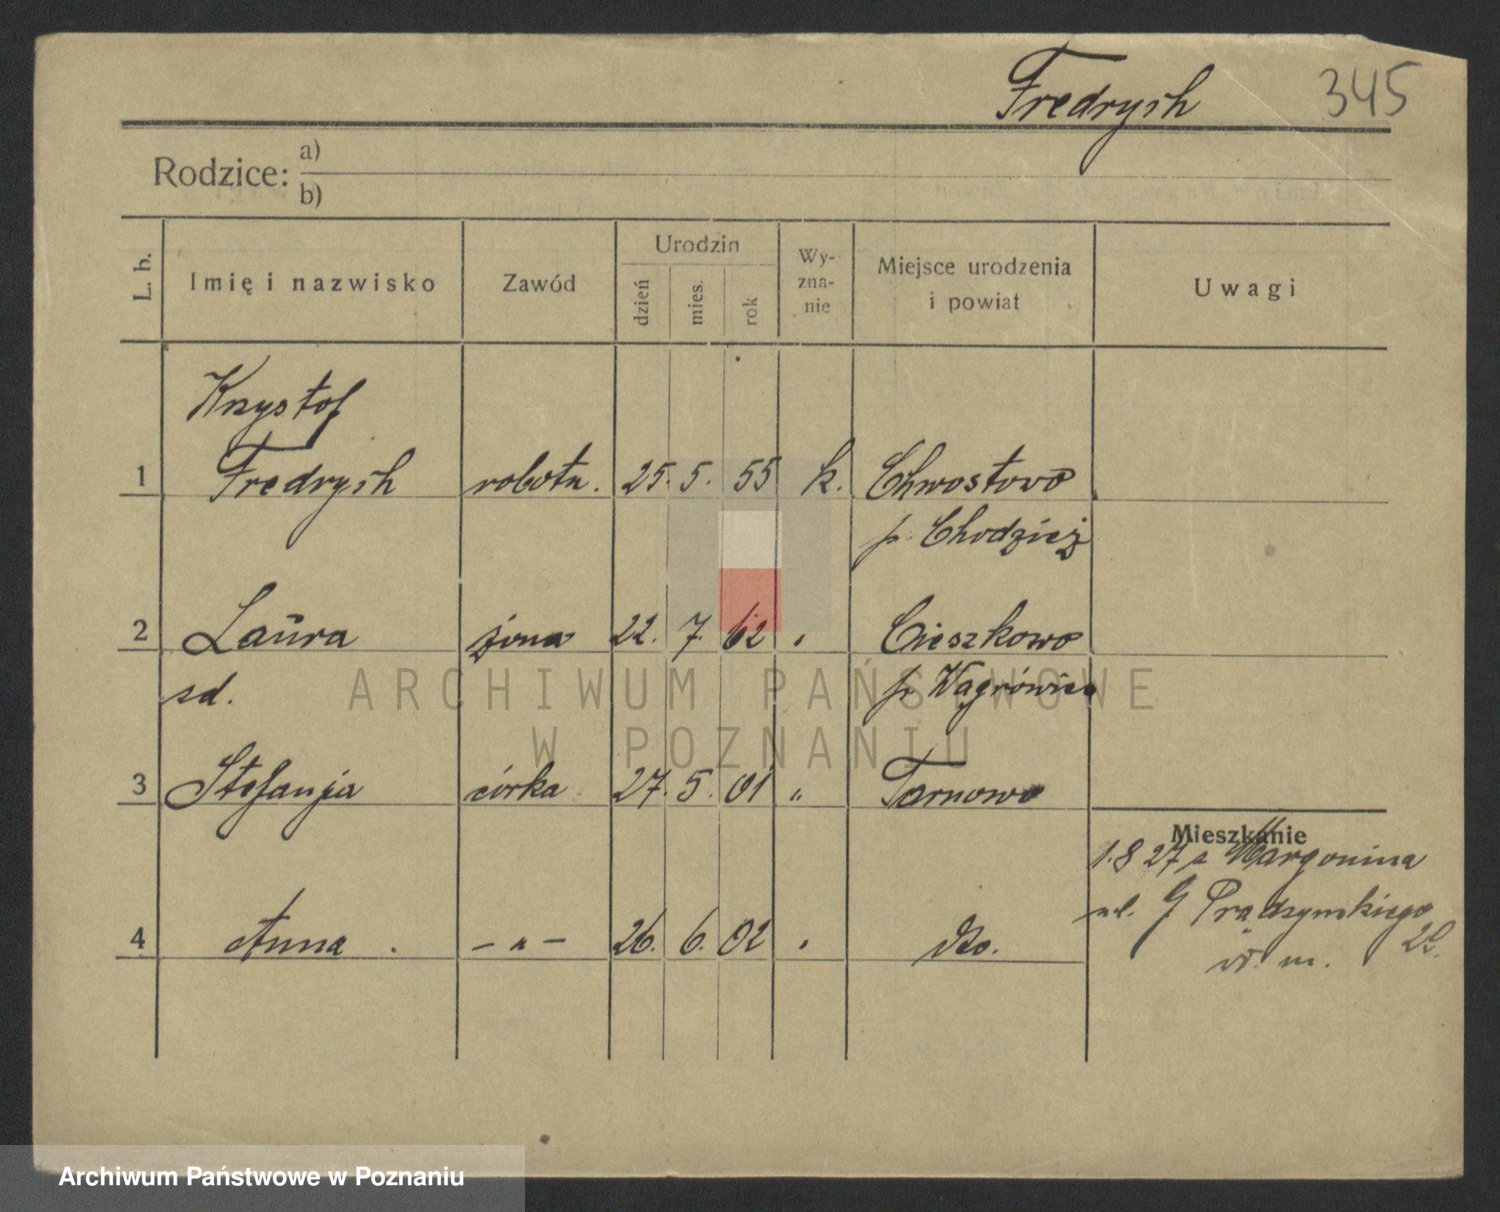 Fredrych 345
Rodzice: a)
b)
L. b. Imię i nazwisko Zawód Urodzin dzień mies. rok Wy-zna-nie Miejsce urodzenia i powiat Uwagi
Krzystof
1 Fredrych robotn. 25. 5. 55 k. Chwostowo
p. Chodzież
2 Laŭra żona 22. 7. 62 " Cieszkowo
sd. p. Wągrówiec
ARCHIWUM PAŃSTWOWE
W POZNANIU
3 Stefanja córka 27. 5. 01 " Tarnowo
Mieszkanie
1.8 27 z Margonina
4 Anna - " - 26. 6. 02 " dto.
ul. G Prądzyńskiego
22.
w m.
Archiwum Państwowe w Poznaniu